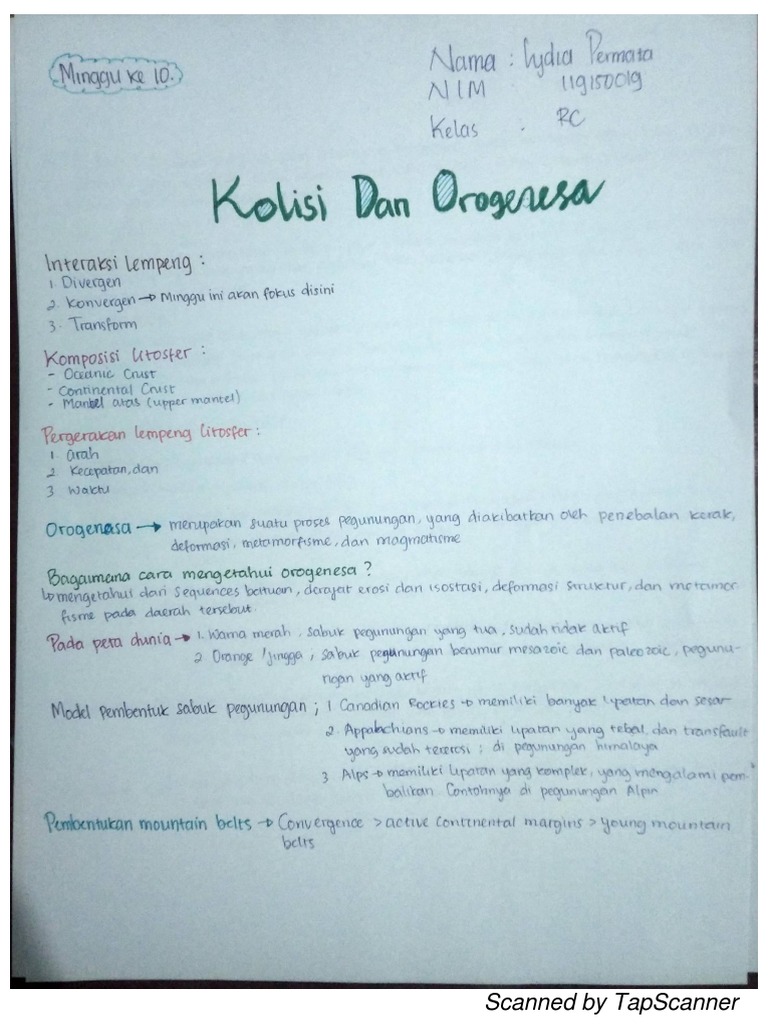 Minggu ke 10.
Nama : Lydia Permata
NIM 119150019
Kelas . RC
Kolisi Dan Orogenesa
Interaksi Lempeng :
1 Divergen
2. Konvergen → Minggu ini akan fokus disini
3. Transform
Komposisi Litosfer :
- Oceanic Crust
- Continental Crust
- Mantel atas (upper mantel)
Pergerakan lempeng Litosfer :
1 arah
2 Kecepatan, dan
3 Waktu
Orogenasa → merupakan suatu proses pegunungan, yang diakibatkan oleh penebalan kerak,
deformasi, metamorfisme, dan magmatisme
Bagaimana cara mengetahui orogenesa ?
↳ mengetahui dari sequences batuan, derajat erosi dan isostasi, deformasi struktur, dan metamor
fisme pada daerah tersebut.
Pada peta dunia → 1. Warna merah, sabuk pegunungan yang tua, sudah tidak aktif
2 Orange /jingga ; sabuk pegunungan berumur mesazoic dan paleozoic, pegunu-
ngan yang aktif
Model Pembentuk sabuk pegunungan ; 1 Canadian Rockies → memiliki banyak lipatan dan sesar
2. Appalachians → memiliki lipatan yang tebal, dan transfault
yang sudah tererosi ; di pegunungan himalaya
3 Alps → memiliki lipatan yang komplek, yang mengalami pem-
balikan. Contohnya di pegunungan Alpin
Pembentukan mountain belts → Convergence > active continental margins > young mountain
belts
Scanned by TapScanner